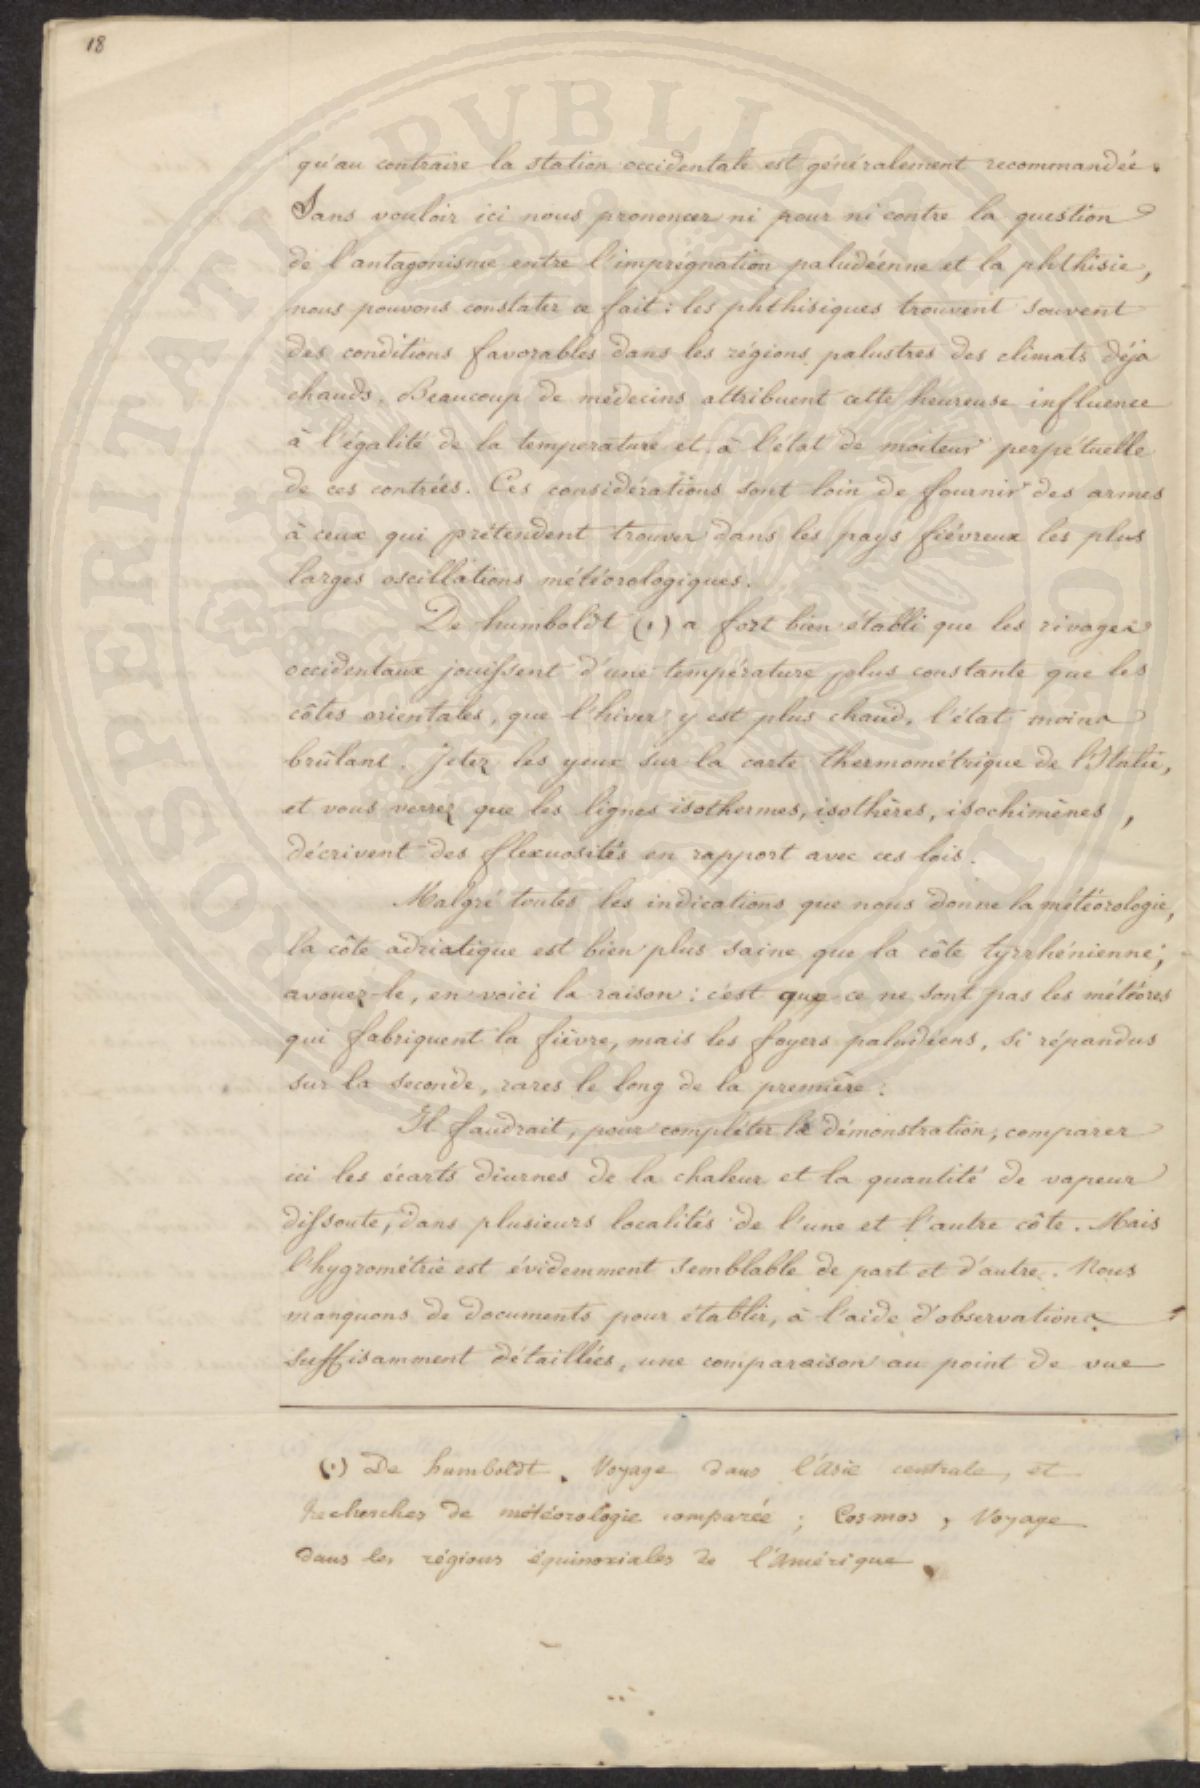 18
qu'au contraire la station occidentale est généralement recommandée.
Sans vouloir ici nous prononcer ni pour ni contre la question
de l'antagonisme entre l'imprégnation paludéenne et la phthisie,
nous pouvons constater ce fait : les phthisiques trouvent souvent
des conditions favorables dans les régions palustres des climats déja
chauds. Beaucoup de médecins attribuent cette heureuse influence
à l'égalité de la temperature et à l'état de moiteur perpétuelle
de ces contrées. Ces considérations sont loin de fournir des armes
à ceux qui prétendent trouver dans les pays fiévreux les plus
larges oscillations météorologiques.
De humboldt (1) a fort bien établi que les rivages
occidentaux jouissent d'une température plus constante que les
côtes orientales, que l'hiver y est plus chaud, l'état moins
brûlant. Jetez les yeux sur la carte thermométrique de l'Italie,
et vous verrez que les lignes isothermes, isothères, isochimènes,
décrivent des flexuosités en rapport avec ces lois.
Malgré toutes les indications que nous donne la météorologie,
la côte adriatique est bien plus saine que la côte tyrrhénienne;
avouez-le, en voici la raison : c'est que ce ne sont pas les météores
qui fabriquent la fièvre, mais les foyers paludéens, si répandus
sur la seconde, rares le long de la première.
Il faudrait, pour compléter la démonstration, comparer
ici les écarts diurnes de la chaleur et la quantité de vapeur
dissoute, dans plusieurs localités de l'une et l'autre côte. Mais
l'hygrométrie est évidemment semblable de part et d'autre. Nous
manquons de documents pour établir, à l'aide d'observations
suffisamment détaillées, une comparaison au point de vue
(1) De humboldt. Voyage dans l'Asie centrale, et
Recherches de météorologie comparée ; Cosmos, Voyage
dans les régions équinoxiales de l'Amérique.
PROSPERITATI PUBLICAE